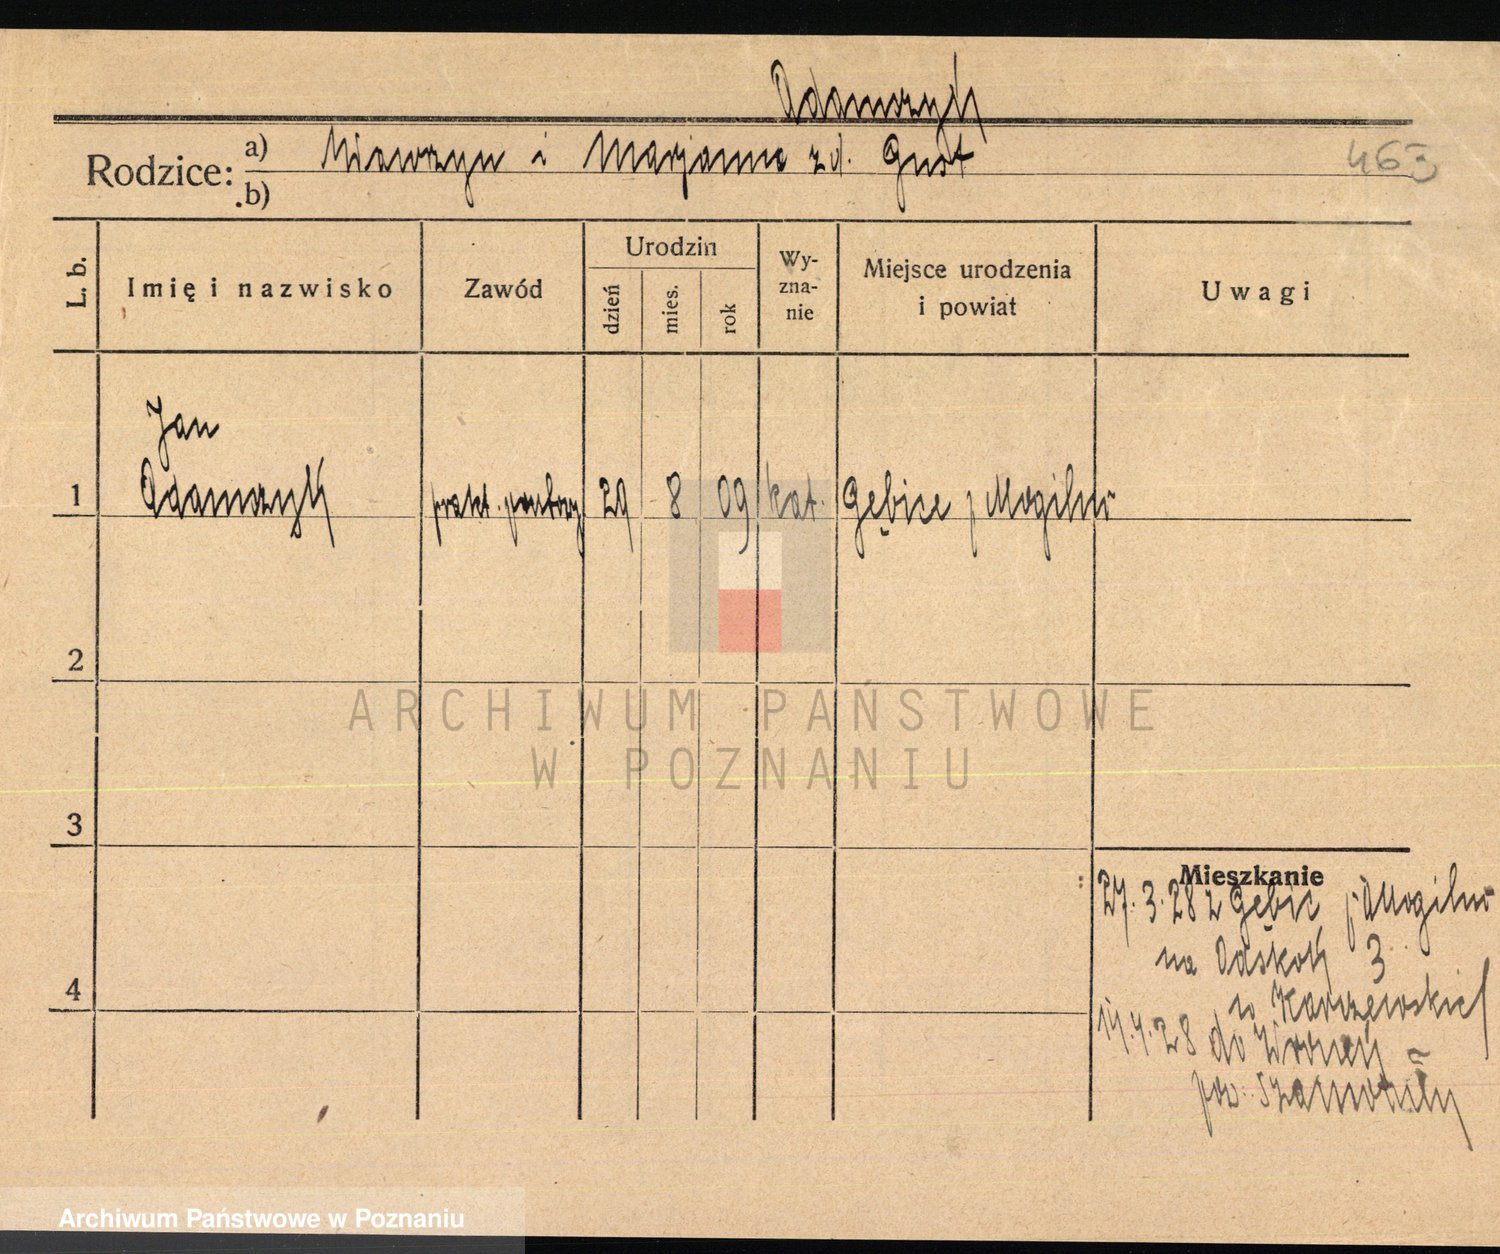 Adamczyk
Rodzice: a) Wawrzyn i Marjanna zd. Gust
b)
463
L. b.
Imię i nazwisko
Zawód
Urodzin
dzień
mies.
rok
Wy-
zna-
nie
Miejsce urodzenia
i powiat
Uwagi
Jan
1 Adamczyk prakt. 29 8 09 kat. Gębice p Mogilno
2
3
4
Mieszkanie
27.3.28 z Gębic p Mogilno
na 3
Karczewskich
do Wronek
pow. Szamotuły
ARCHIWUM PAŃSTWOWE
W POZNANIU
Archiwum Państwowe w Poznaniu